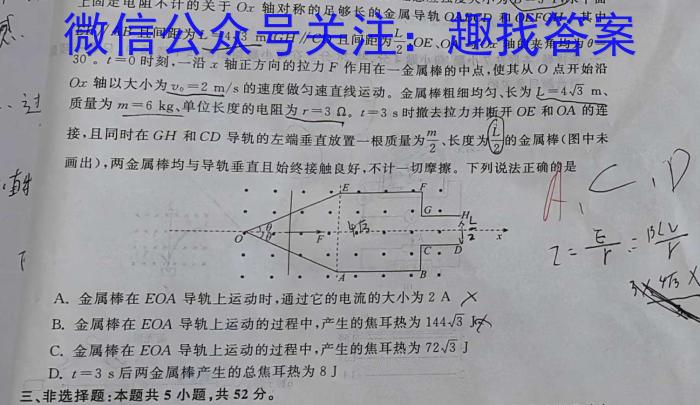 上固定电阻不计的关于 Ox 轴对称的足够长的金属导轨
微信公众号关注：趣找答案
30°。t=0 时刻,一沿 x 轴正方向的拉力 F 作用在一金属棒的中点,使其从 O 点开始沿
Ox 轴以大小为 v₀=2 m/s 的速度做匀速直线运动。金属棒粗细均匀、长为 L=4√3 m、
质量为 m=6 kg、单位长度的电阻为 r=3 Ω。t=3 s 时撤去拉力并断开 OE 和 OA 的连
接,且同时在 GH 和 CD 导轨的左端垂直放置一根质量为 m/2、长度为 L/2 的金属棒(图中未
画出),两金属棒均与导轨垂直且始终接触良好,不计一切摩擦。下列说法正确的是
A, C, D
E
F
G
H
L/2
O
θ
θ
F
x
C
D
A
B
A. 金属棒在 EOA 导轨上运动时,通过它的电流的大小为 2 A
B. 金属棒在 EOA 导轨上运动的过程中,产生的焦耳热为 144√3 J
C. 金属棒在 EOA 导轨上运动的过程中,产生的焦耳热为 72√3 J
D. t=3 s 后两金属棒产生的总焦耳热为 8 J
三、非选择题:本题共 5 小题,共 52 分。